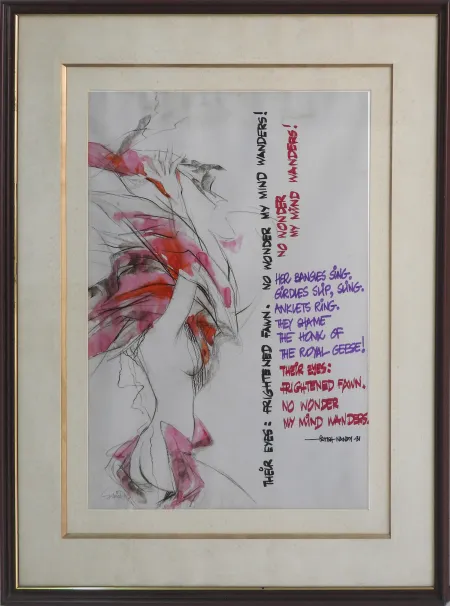 THEIR EYES: FRIGHTENED FAWN. NO WONDER MY MIND WANDERS!
NO WONDER
MY MIND WANDERS!
HER BANGLES SING.
GIRDLES SLIP, SLING.
ANKLETS RING.
THEY SHAME
THE HONK OF
THE ROYAL GEESE!
THEIR EYES:
FRIGHTENED FAWN.
NO WONDER
MY MIND WANDERS.